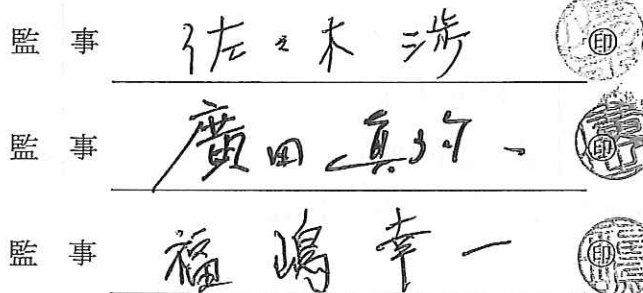 監事 佐々木渉 印
監事 廣田真 一 印
監事 福嶋幸一 印